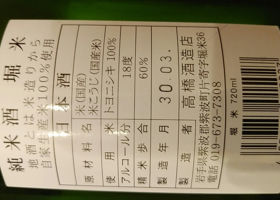 純米酒 堀米
地酒とは米造りから
自家生産米100%使用
日本酒
原材料名 米(国産)
米こうじ(国産米)
使用米 トヨニシキ 100%
アルコール分 18度
精米歩合 60%
製造年月 30.03.
製造者 高橋酒造店
岩手県紫波郡紫波町片寄字堀米36
電話 019-673-7308
堀米 720ml